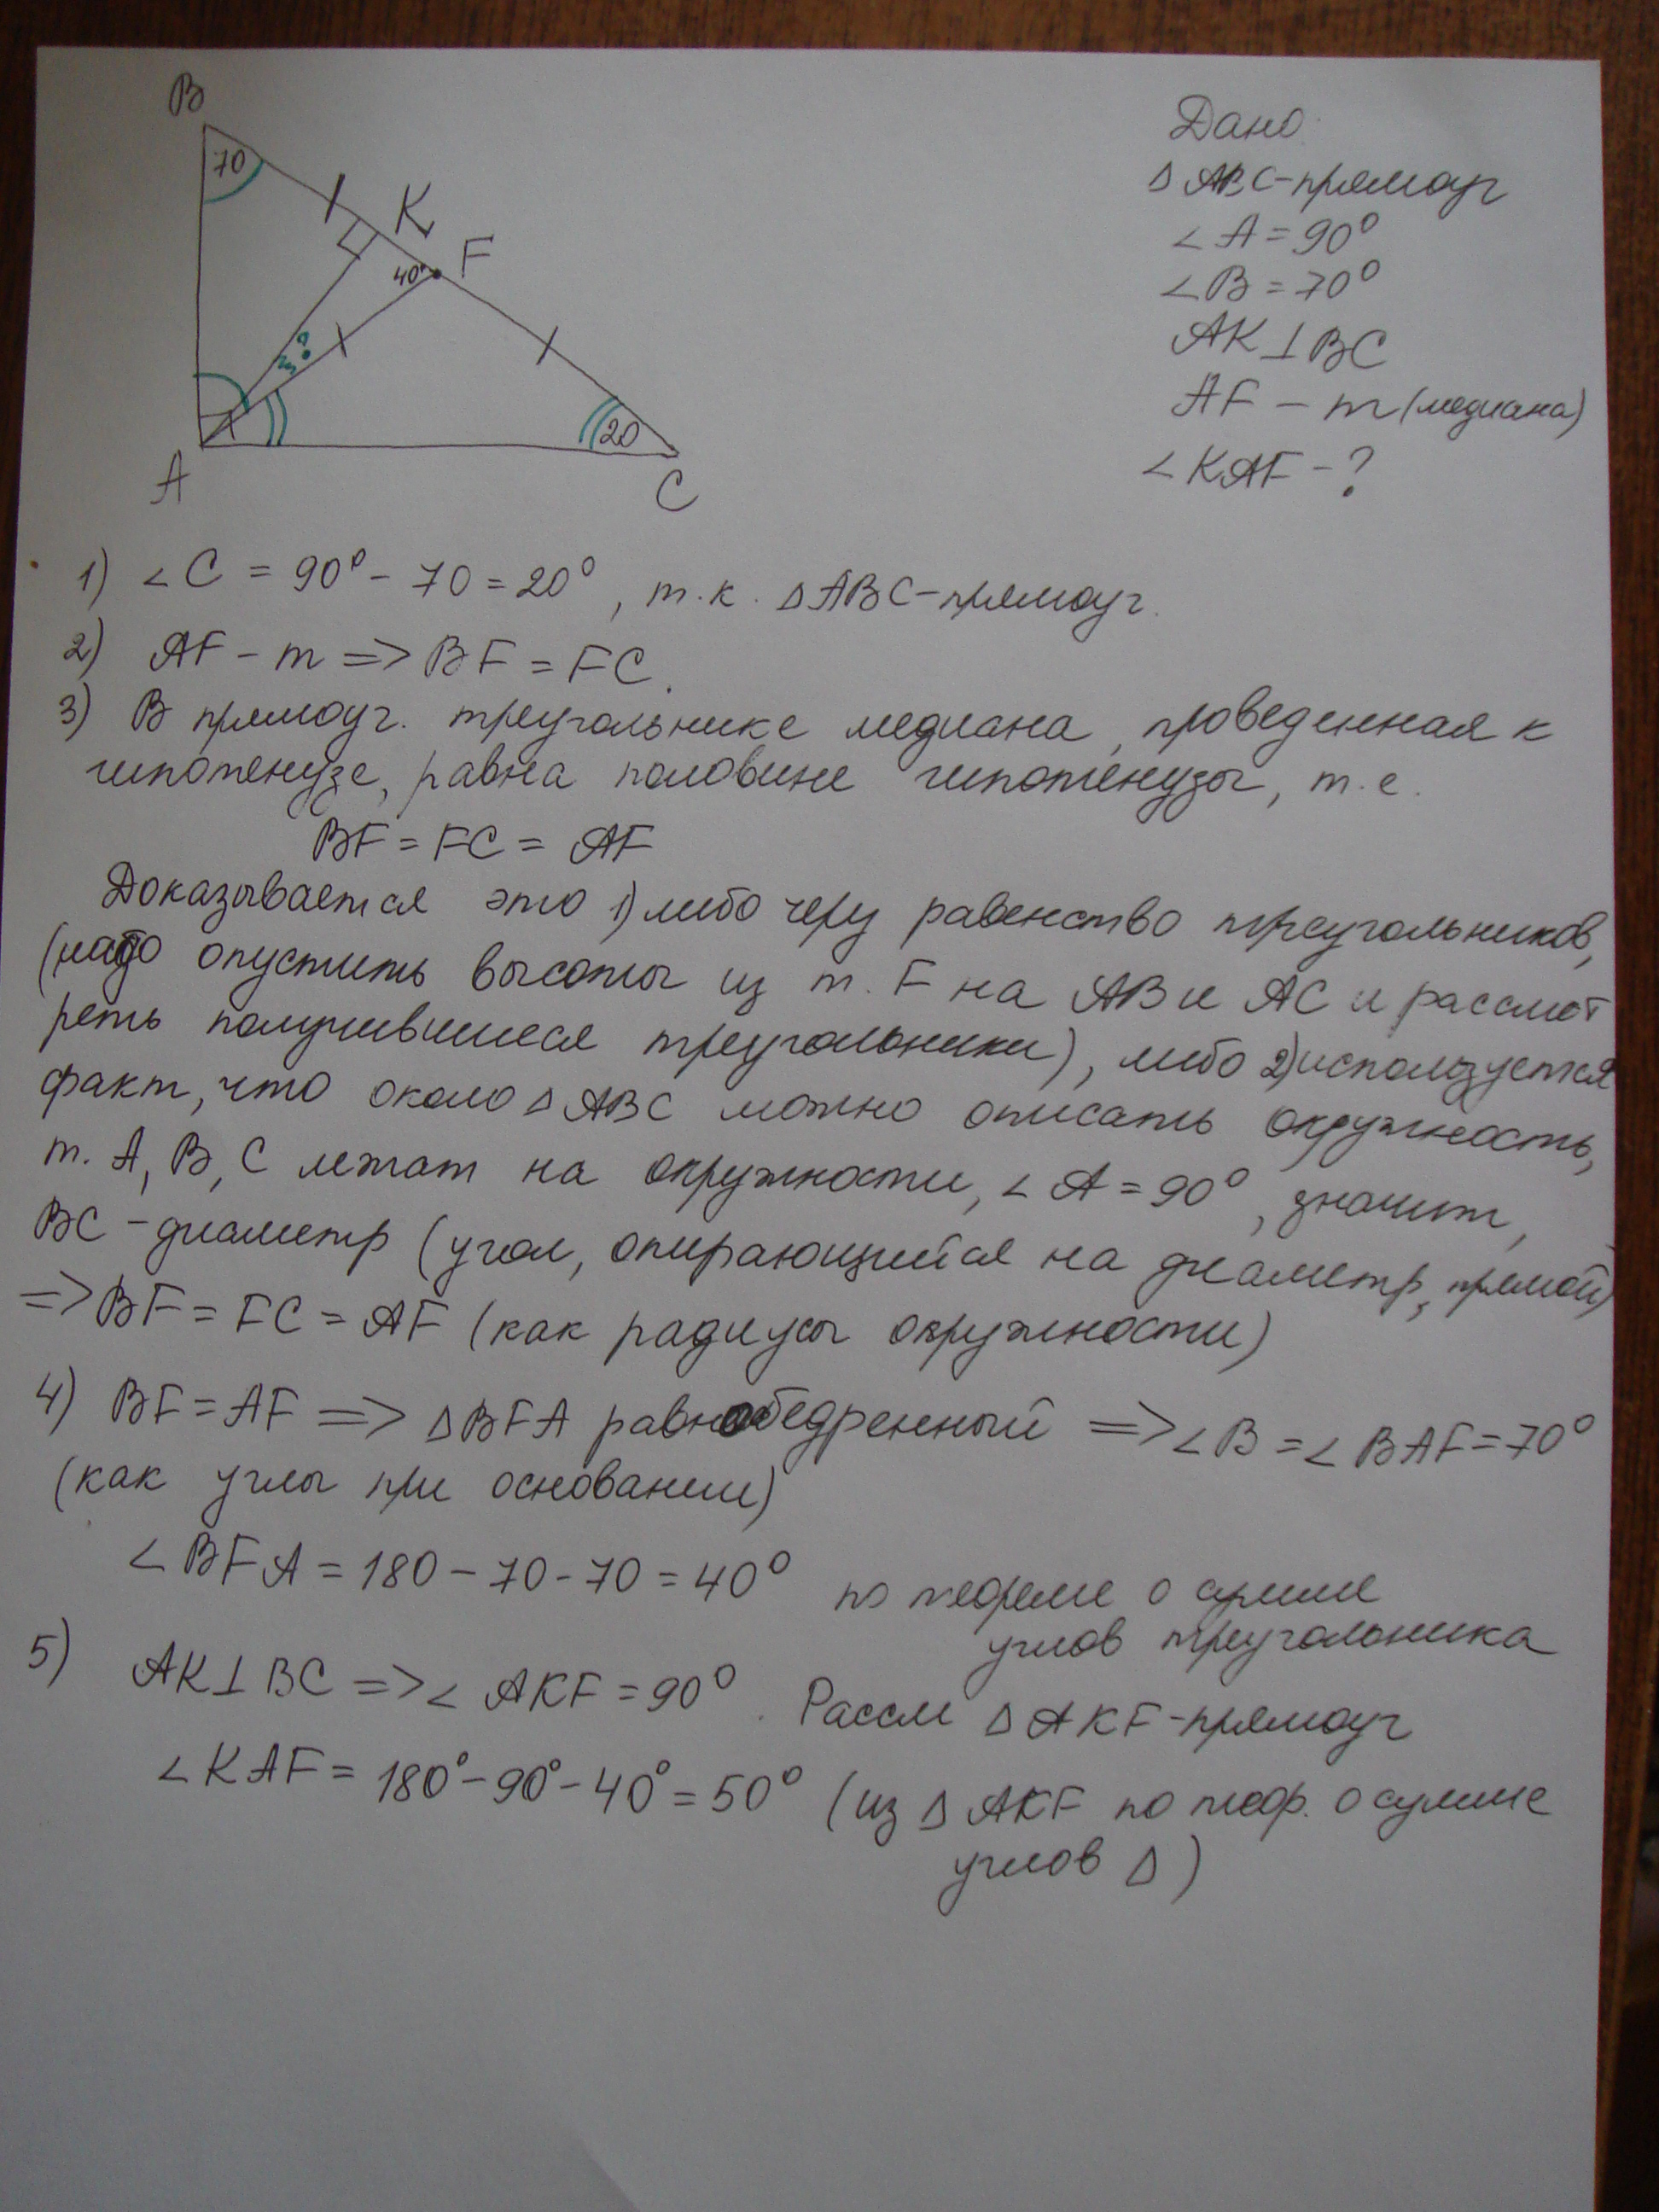 B
70
K
F
40°
?
A
20
C
Дано
△ ABC-прямоуг
∠ A = 90°
∠ B = 70°
AK ⊥ BC
AF – m (медиана)
∠ KAF – ?
1) ∠ C = 90° - 70 = 20°, т.к. △ ABC-прямоуг.
2) AF – m => BF = FC.
3) В прямоуг. треугольнике медиана, проведенная к
гипотенузе, равна половине гипотенузы, т.е.
BF = FC = AF
Доказывается это 1) либо через равенство треугольников,
(надо опустить высоты из т. F на AB и AC и рассмот
реть получившиеся треугольники), либо 2) используется
факт, что около △ ABC можно описать окружность,
т. A, B, C лежат на окружности, ∠ A = 90°, значит,
BC – диаметр (угол, опирающийся на диаметр, прямой)
=> BF = FC = AF (как радиусы окружности)
4) BF = AF => △ BFA равнобедренный => ∠ B = ∠ BAF = 70°
(как углы при основании)
∠ BFA = 180 – 70 - 70 = 40° по теореме о сумме
углов треугольника
5) AK ⊥ BC => ∠ AKF = 90°. Рассм △ AKF-прямоуг
∠ KAF = 180° – 90° – 40° = 50° (из △ AKF по теор. о сумме
углов △)